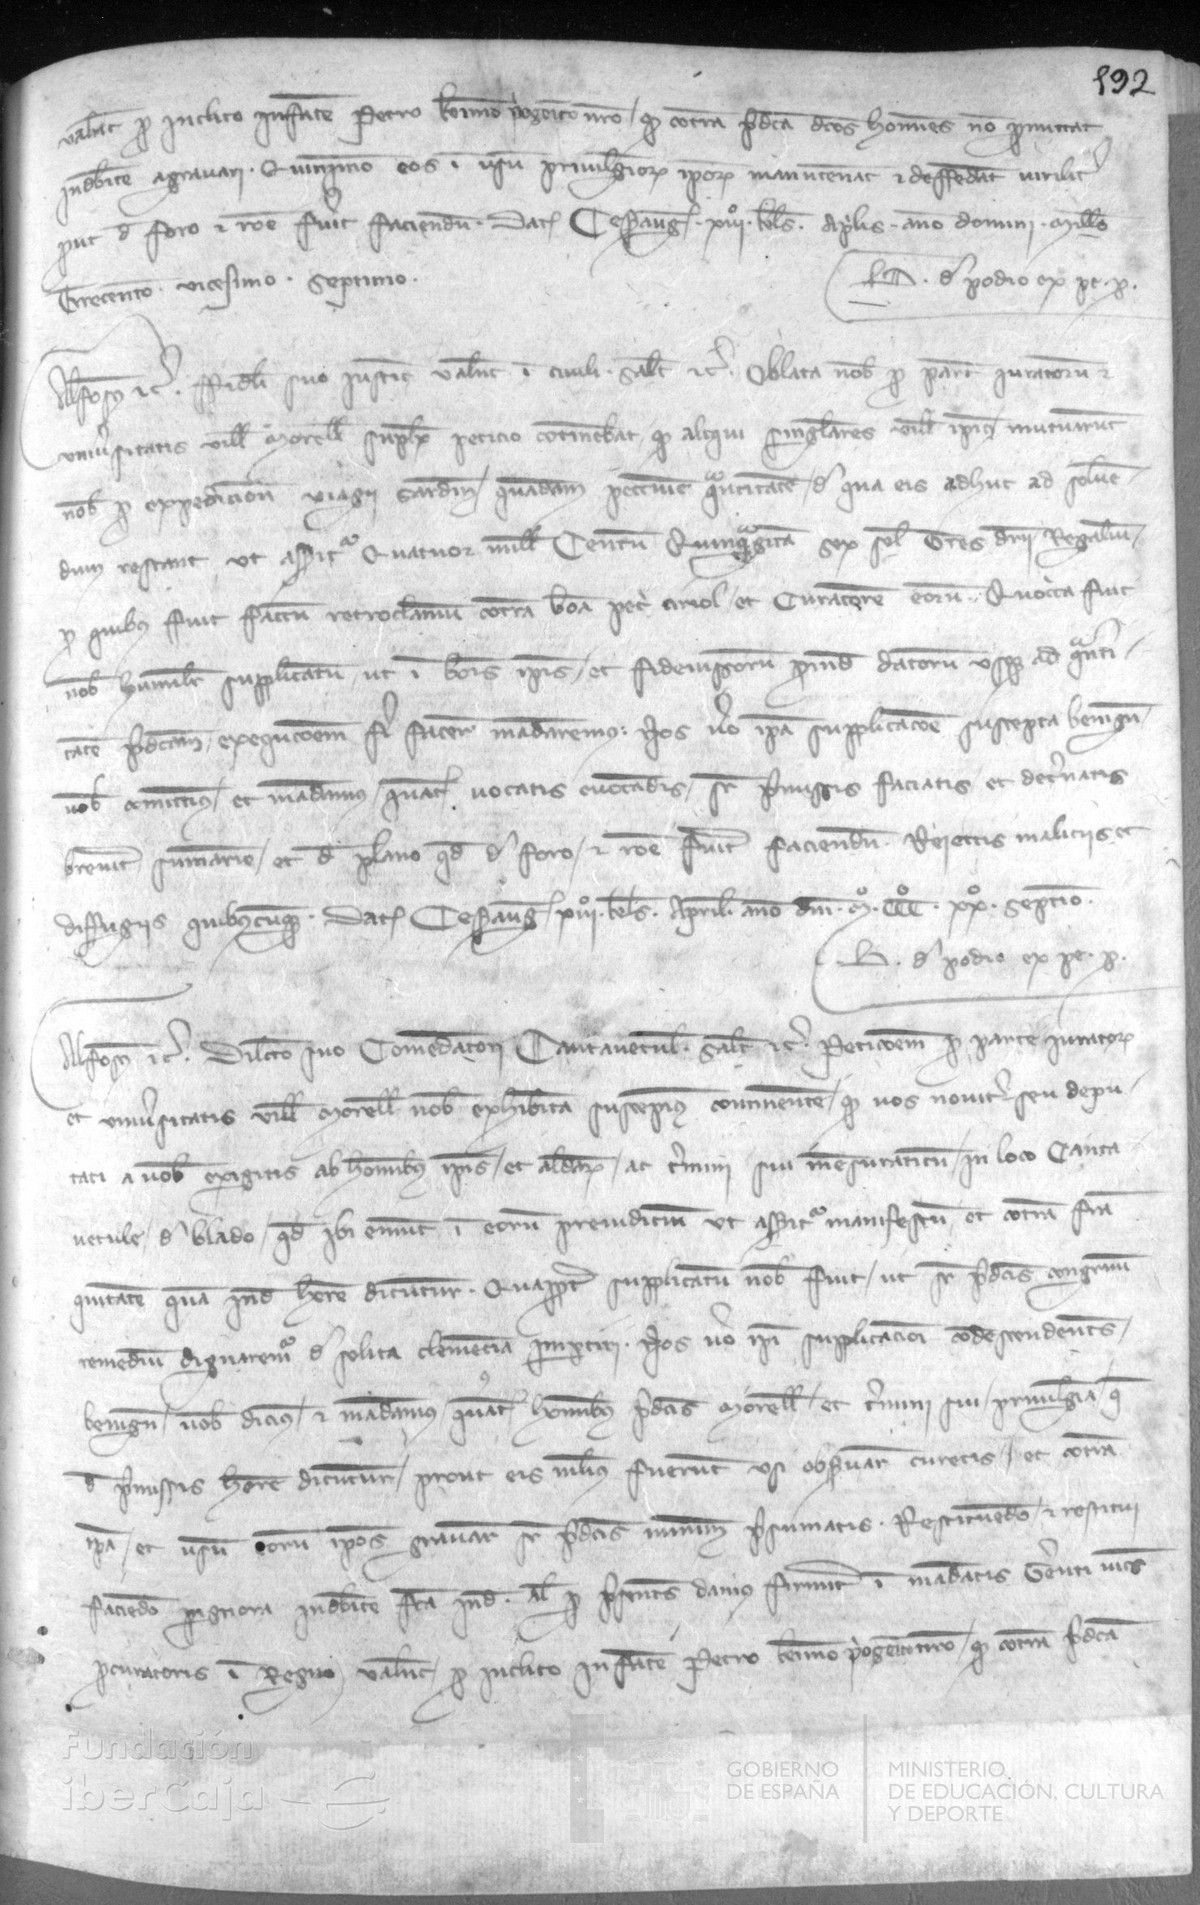 192
valent p inclito Infante Petro karmo p̃ogeito nr̃o / qd cont̃a p̃dc̃a dc̃os hom̃es nõ p̃mittat
indebite agrauari · Quinimo eos ĩ usu priuilegior ip̃or manuteneat ⁊ deffendat uirilit̃
put d̃ foro ⁊ rõe fuit faciendũ · Dat̃ Cesaraug̃ · xiiiº · kl̃s · Ap̃lis · año domini · Millo
Trecento · vicesimo · septimo ·
B · d̃ podio ex pt · p̃ ·
Alfoñs ⁊c̃ · Fideli suo iustic̃ valent̃ ĩ ciuili · salt̃ ⁊c̃ · Oblata nob̃ p̃ part̃ iuratorũ ⁊
uniũsitatis vill̃ Morell̃ suplex peticio cõtinebat qd aliqui singlares vill̃ ip̃ius mutuarũt
nob̃ p̃ expedicionẽ viagii Sardiñ / quandam peccunie quãtitatẽ / d̃ qua eis adhuc ad soluẽ-
dum restant ut asserit̃ Quatuor mill̃ Centũ Quinquagĩta sex sol̃ Tres dñii Regaliũ /
p̃ quibus fuit factũ retroclamũ cont̃a bõa pet̃ ciriol / et Curatorẽ eorũ · Quocc̃a fuit
nob̃ humilit̃ supplicatũ / ut ĩ bõis ip̃is / et fideiussorũ p̃ind datorũ usq̃ ad q̃nti-
tatẽ p̃dc̃am / exequcõem fi᷉ facer mãdaremus : Nos ṽo ip̃a supplicacõe suscepta benigñ /
uob̃ comittim⁹ / et mãdamus / quat̃ uocatis euocãdis / sr̃ p̃missis faciatis et det̃natis
breuit̃ sũmarie / et d̃ plano qd̃ d̃ foro / ⁊ rõe fuit̃ faciendũ · Reiectis maliciis et
diffugiis quibuscũq̃ · Dat̃ Cesaraug̃ xiiiº · kl̃s · April̃ · año dñi · Mº · CCCº · xxº · septĩo ·
B · d̃ podio ex pt · p̃ ·
Alfoñs ⁊c̃ · Dilc̃to suo Comẽdatori Cantauetul̃ · salt̃ ⁊c̃ · Peticõem p̃ parte iurator
et uniũsitatis vill̃ Morell̃ nob̃ exhibita suscepim⁹ continentẽ / qd uos nouit̃ seu depu-
tati a uob̃ exigitis ab hoĩbus ip̃is / et aldear / ac t̃mini sui mesuraticũ / in loco Canta
uetule / d̃ blado / qd̃ ibi emũt ĩ eorũ preiudiciũ ut asserit̃ manifestũ et cont̃a frã
quitatẽ quã ind̃ h̃ere dicũtur · Quapp̃t̃ supplicatũ nob̃ fuit / ut sr̃ p̃dc̃is congruũ
remediũ dignarem̃ d̃ solita clemẽcia imp̃tiri · Nos ṽo ip̃i supplicacõi cõdescendent̃s /
benigñ / uob̃ dicim⁹ / ⁊ mãdamus / quat̃ hom̃ibus p̃dc̃is Morell̃ / et t̃mini sui / priuilegia / q̃
d̃ p̃missis h̃ere dicũtur / prout eis meli⁹ fuerũt usi obseruar curetis / et cont̃a
ip̃a / et usũ eorũ ip̃os grauar sr̃ p̃dc̃is minime p̃sumatis · Restituendo / ⁊ restitui
faciẽdo pignora indebite fc̃a ind̃ · Al̃ p̃ p̃sent̃s damus firmit̃ ĩ mãdatis Gerenti uic̃s
p̃curatoris ĩ Regno valent̃ / p̃ inclito Infantẽ Petro karmo p̃ogeito nr̃o / qd cont̃a p̃dc̃a
Fundación
iberCaja
GOBIERNO
DE ESPAÑA
MINISTERIO
DE EDUCACIÓN, CULTURA
Y DEPORTE